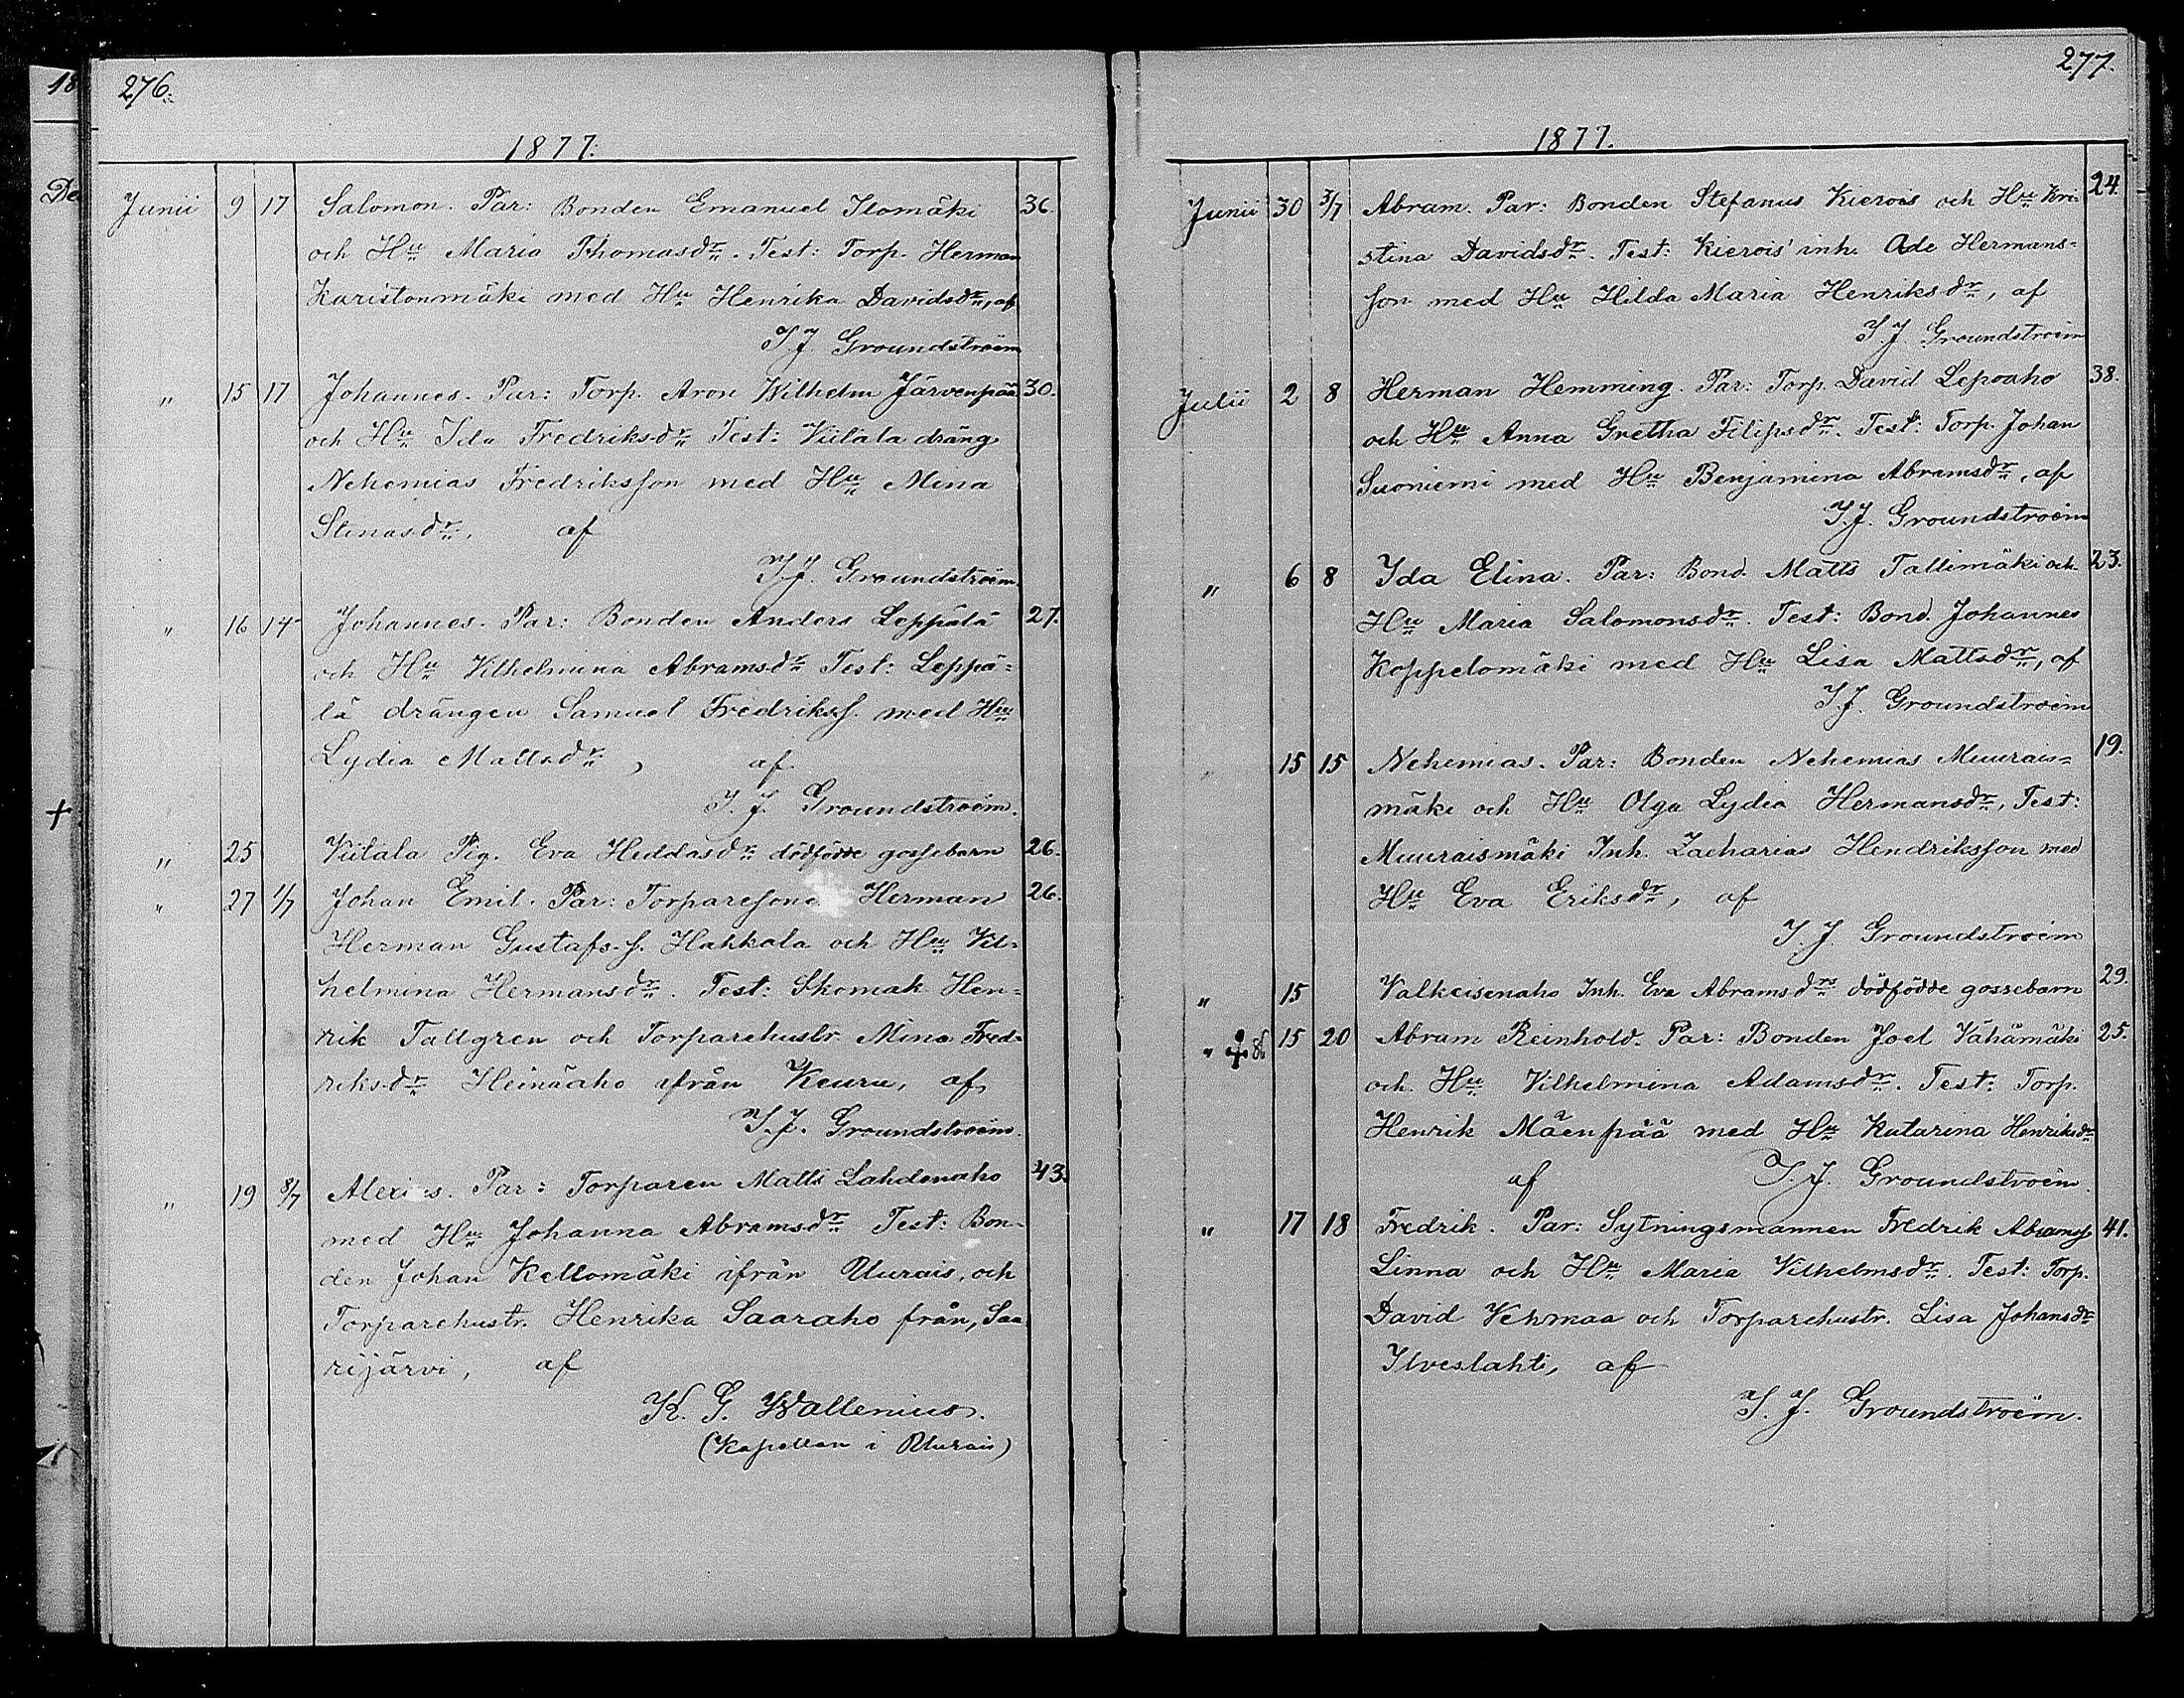 276.
1877.
Junii 9 17 Salomon. Par: Bonden Emanuel Ilomäki 36.
och Hu Maria Thomasdr. Test: Torp. Herman
Karistonmäki med Hu Henrika Davidsdr, af
I J. Groundstroëm
" 15 17 Johannes. Par: Torp. Aron Wilhelm Järvenpää 30.
och Hu Ida Fredriksdr Test: Viitala dräng
Nehemias Fredriksson med Hu Mina
Stinasdr, af
I J. Groundstroëm
" 16 17 Johannes. Par: Bonden Anders Leppälä 27.
och Hu Vilhelmina Abramsdr Test: Leppä=
lä drängen Samuel Fredrikss. med Hu
Lydia Mattsdr, af
I. J. Groundstroëm.
" 25 Viitala Pig. Eva Heddasdr dödfödde gossebarn 26.
" 27 1/7 Johan Emil. Par: Torparesone Herman 26.
Herman Gustafs. s. Hahkala och Hu Vil=
helmina Hermansdr. Test: Skomak Hen=
rik Tallgren och Torparehustr. Mina Fred=
riksdr Heinäaho ifrån Keuru, af
I. J. Groundstroëm.
" 19 8/7 Alexius. Par: Torparen Matts Lahdenaho 43.
med Hu Johanna Abramsdr Test: Bon-
den Johan Kellomäki ifrån Uurais, och
Torparehustr. Henrika Saaraho från, Saa
rijärvi, af
K. G. Wallenius.
(Kapellan i Uurais)
277.
1877.
Junii 30 3/7 Abram. Par: Bonden Stefanus Kierois och Hu Kri- 24.
stina Davidsdr. Test: Kierois' inh. Ade Hermans=
son med Hu Hilda Maria Henriksdr, af
I. J. Groundstroëm
Julii 2 8 Herman Hemming. Par: Torp. David Lepoaho 38.
och Hu Anna Gretha Filipsdr. Test: Torp. Johan
Suoniemi med Hu Benjamina Abramsdr, af
I. J. Groundstroëm
" 6 8 Ida Elina. Par: Bond. Matts Tallimäki och 23.
Hu Maria Salomonsdr. Test: Bond. Johannes
Koppelomäki med Hu Lisa Mattsdr, af
I J. Groundstroëm
15 15 Nehemias. Par: Bonden Nehemias Muurais= 19.
mäki och Hu Olga Lydia Hermansdr, Test:
Muuraismäki Inh. Zacharias Hendriksson med
Hu Eva Eriksdr, af
I. J. Groundstroëm
" 15 Valkeisenaho Inh. Eva Abramsdrs dödfödde gossebarn 29.
" 15 20 Abram Reinhold. Par: Bonden Joel Vähämäki 25.
och Hu Vilhelmina Adamsdr. Test: Torp.
Henrik Mäenpää med Hu Katarina Henriksdr
af I. J. Groundstroëm.
" 17 18 Fredrik. Par: Sytningsmannen Fredrik Abramss 41.
Linna och Hu Maria Vilhelmsdr. Test: Torp.
David Vehmaa och Torparehustr. Lisa Johansdr
Ilveslahti, af
I. J. Groundstroëm.